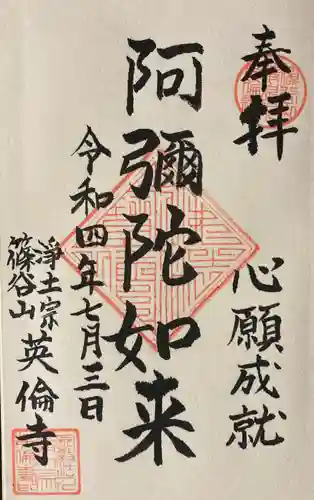 奉拝
心願成就
阿彌陀如来
令和四年七月三日
浄土宗
篠谷山
英倫寺